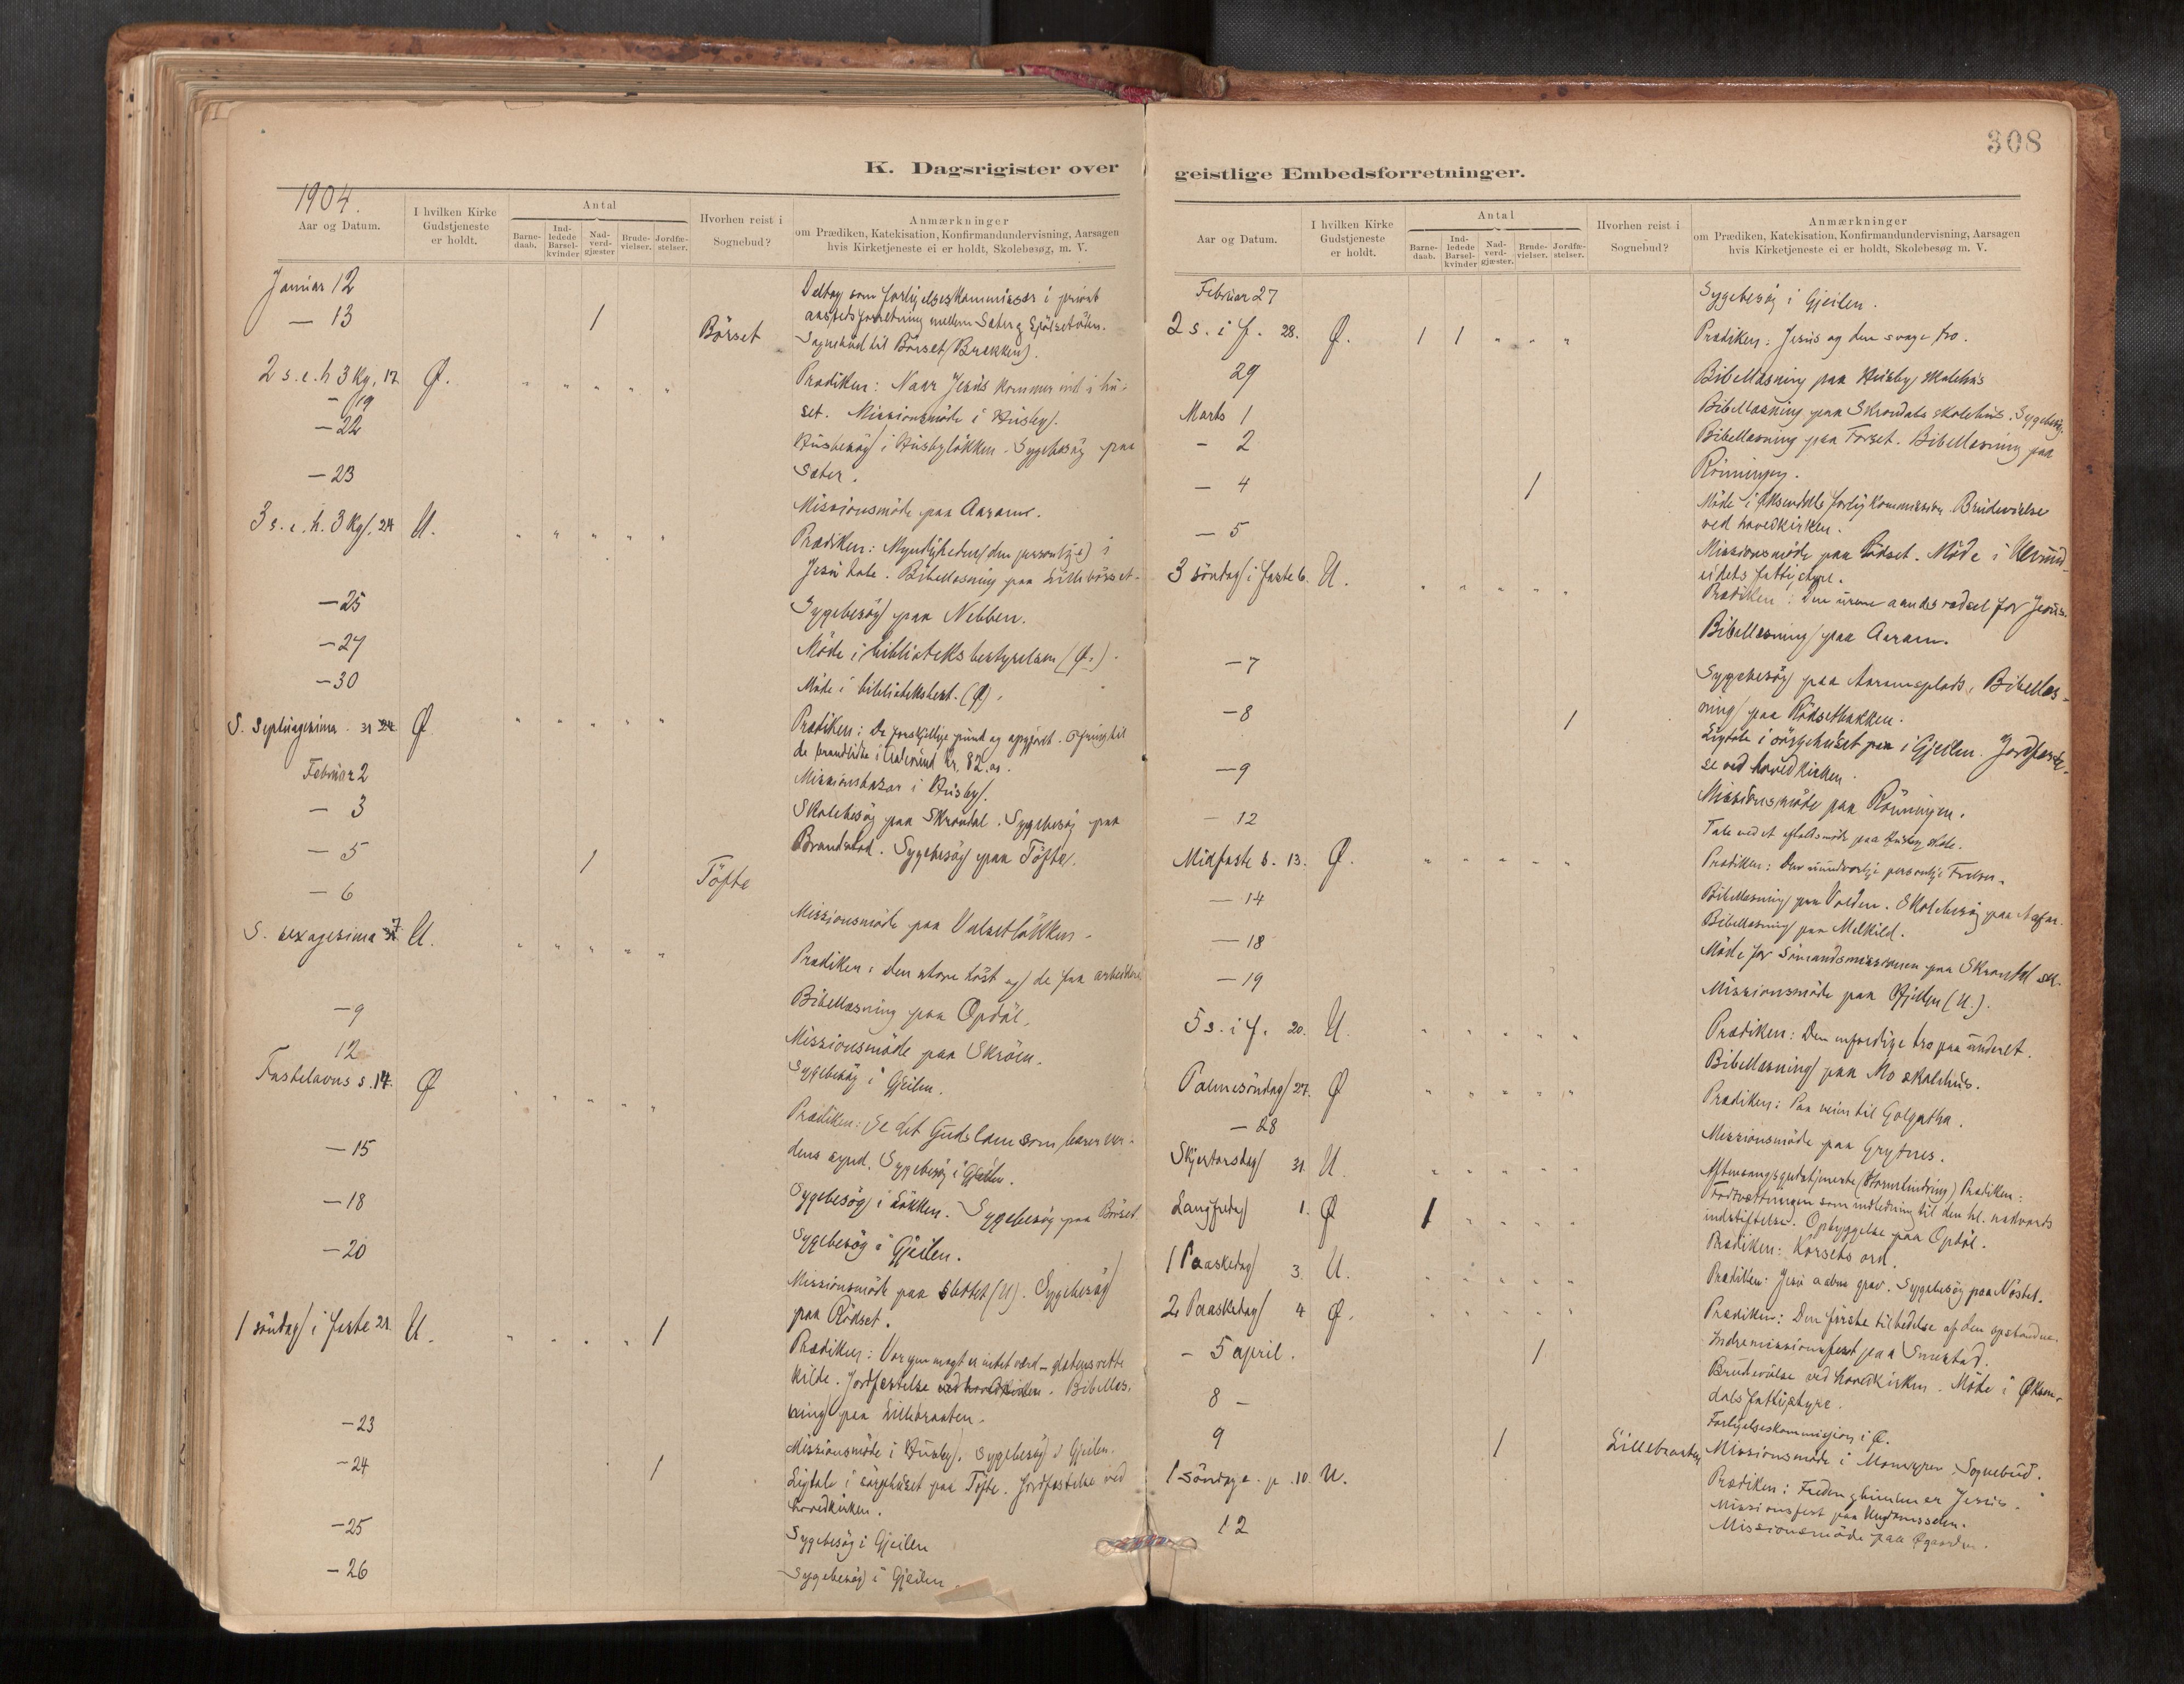 308
K. Dagsrigister over
1904.
Aar og Datum.
I hvilken Kirke
Gudstjeneste
er holdt.
Antal
Barne-
daab.
Ind-
ledede
Barsel-
kvinder
Nad-
verd-
gjæster
Brude-
vielser.
Jordfæ-
stelser.
Hvorhen reist i
Sognebud?
Anmærkninger
om Prædiken, Katekisation, Konfirmandundervisning, Aarsagen
hvis Kirketjeneste ei er holdt, Skolebesøg, m. V.
Januar 12 Deltog som forligelseskommissær i privat
— 13 1 Börset
Sognebud til Börset (Brækken).
2 s. e. h 3 Kg. 17. Ø. " " " " " Prædiken: Naar Jesus kommer ind i hu-
— 19 set. Missionsmöde i Husby.
— 22 Husbesög i Husbylökken. Sygebesög paa
Sæter.
— 23 Missionsmöde paa Aaram.
3 s. e. h. 3 Kg. 24 U. " " " " " Prædiken: Myndigheden (den personlige) i
Jesu tale. Bibellæsning paa Lillebörset.
— 25 Sygebesög paa Nebben.
— 27 Möde i biblioteksbestyrelsen (Ø.).
— 30 Möde i biblioteksbest. (Ø).
S. Septuagesima 31 Ø " " " " " Prædiken: De forskjellige pund og opgjöret. Ofring til
de brandlidte i Aalesund kr. 82.
Februar 2 Missionsbasar i Husby.
— 3 Skolebesög paa Skrondal. Sygebesög paa
Brandstad. Sygebesög paa Töfte.
— 5 1 Töfte
— 6 Missionsmöde paa Valsetlökken.
S. sexagesima 7 U. " " " " " Prædiken: den store höst og de faa arbeidere
— 9 Bibellæsning paa Opdöl.
12 Missionsmöde paa Skröen.
Sygebesög i Gjeilen.
Fastelavns s. 14. Ø " " " " " Prædiken: Se det Guds lam som bærer ver-
dens synd. Sygebesög i Gjeilen.
— 15 Sygebesög i Lökken. Sygebesög paa Börset.
— 18 Sygebesög i Gjeilen.
— 20 Missionsmöde paa Slettet (U). Sygebesög
paa Rödset.
1 söndag i faste 21. U. " " " " 1 Prædiken: Vor egen magt er intet værd – glædens rette
kilde. Jordfæstelse ved hovedkirken. Bibellæs-
ning paa Lillebraaten.
— 23 Missionsmöde i Husby. Sygebesög i Gjeilen.
— 24 1 Ligtale i sörgehuset paa Töfte. Jordfæstelse ved
hovedkirken.
— 25 Sygebesög i Gjeilen
— 26 Sygebesög i Gjeilen.
geistlige Embedsforretninger.
Aar og Datum.
I hvilken Kirke
Gudstjeneste
er holdt.
Antal
Barne-
daab.
Ind-
ledede
Barsel-
kvinder
Nad-
verd-
gjæster.
Brude-
vielser.
Jordfæ-
stelser.
Hvorhen reist i
Sognebud?
Anmærkninger
om Prædiken, Katekisation, Konfirmandundervisning, Aarsagen
hvis Kirketjeneste ei er holdt, Skolebesøg m. V.
Februar 27 Sygebesög i Gjeilen.
2 s. i f. 28. Ø. 1 1 " " " Prædiken: Jesus og den svage tro.
29 Bibellæsning paa Husby skolehus
Marts 1 Bibellæsning paa Skrondals skolehus. Sygebesög.
- 2 Bibellæsning paa Forset. Bibellæsning paa
Rönningen.
— 4 1 Möde i Öksendals forligkommission. Brudevielse
ved hovedkirken.
— 5 Missionsmöde paa Rödset. Möde i Ulvund-
eidets fattigstyre.
3 söndag i faste 6. U. " " " " " Prædiken: Den urene aands rædsel for Jesus.
Bibellæsning paa Aaram.
— 7 Sygebesög paa Aaramsplads. Bibellæs-
ning paa Rödsetbakken.
— 8 1 Ligtale i sörgehuset paa i Gjeilen. Jordfæstel-
se ved hovedkirken.
— 9 Missionsmöde paa Rönningen.
— 12 Tale ved et afholdsmöde paa Husby skole.
Midfaste s. 13. Ø. " " " " " Prædiken: Den uundværlige personlige Frelser.
— 14 Bibellæsning paa Volden. Skolebesög paa
Bibellæsning paa Melkild.
— 18 Möde for Sömandsmissionen paa Skrondal sk.
— 19 Missionsmöde paa Gjeilen (U.).
5 s. i f. 20. U. " " " " " Prædiken: Den ufærdige tro paa underet.
Bibellæsning paa Mo skolehus.
Palmesöndag 27. Ø " " " " " Prædiken: Paa veien til Golgatha.
— 28 Missionsmöde paa Grytnes.
Skjertorsdag 31. U. " " " " " Aftensangsgudstjeneste (Stormhindring) Prædiken:
Fodtvætningen som indledning til den hl. nadverds
indstiftelse. Opbyggelse paa Opdöl.
Langfredag 1. Ø 1 " " " " Prædiken: Korsets ord.
1 Paaskedag 3. U. " " " " " Prædiken: Jesu aabne grav. Sygebesög paa Nöstet.
2. Paaskedag 4 Ø. " " " " " Prædiken: Den förste tilbedelse af den opstandne.
Indremissionsfest paa Smestad.
- 5 april. 1 Brudevielse ved hovedkirken. Möde i Öksen-
dals fattigstyre.
8 - Forligelseskommission i Ø.
9 1 Lillebraaten Missionsmöde i Monsvegen. Sognebud.
1 söndag e. p. 10. U. Prædiken: Freden Jesus.
Missionsfest paa Ungdomssalen.
12 Missionsmöde paa Øgaarden.